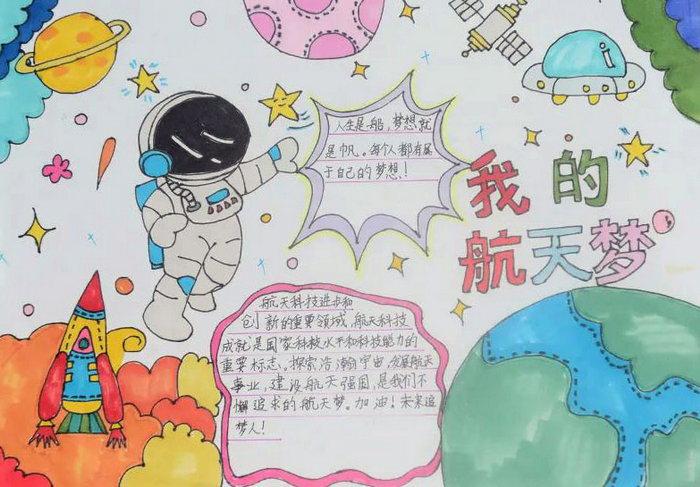 人生是船,梦想就
是帆。每个人都有属
于自己的梦想!
我的
航天梦
航天科技进步和
创新的重要领域,航天科技
成就是国家科技水平和科技能力的
重要标志,探索浩瀚宇宙,发展航天
事业,建设航天强国,是我们不
懈追求的航天梦。加油!未来追
梦人!